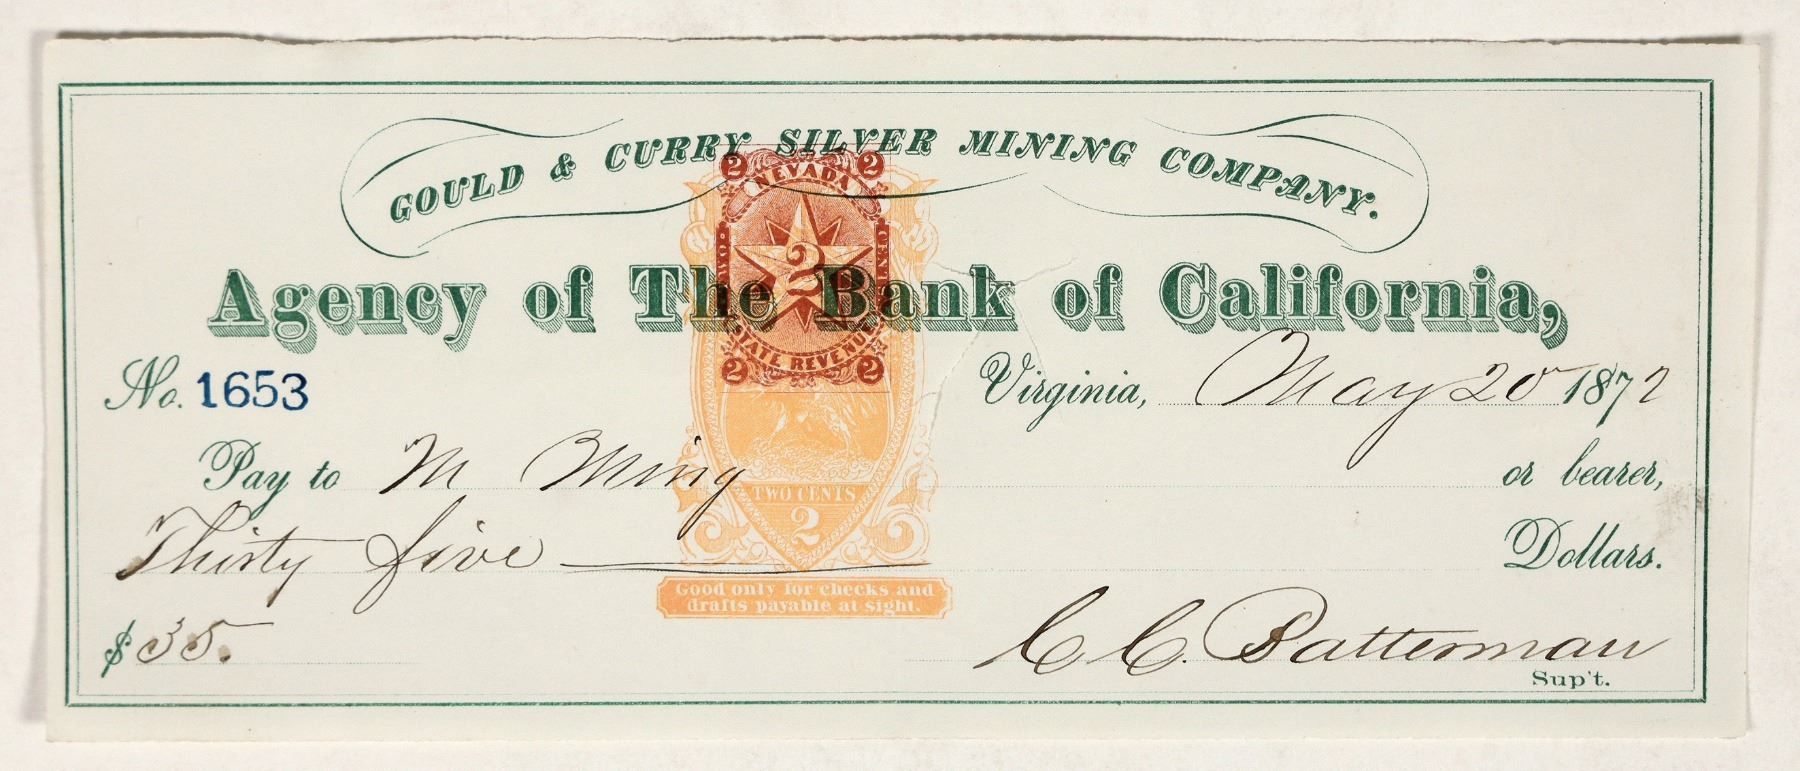 GOULD & CURRY SILVER MINING COMPANY.
2 2
NEVADA
TWO CENTS
2
Agency of The Bank of California,
STATE REVENUE
2 2
No. 1653
Virginia, May 20 1872
Pay to M Ming or bearer,
TWO CENTS
2
Thirty five Dollars.
Good only for checks and
drafts payable at sight.
$35.
C C. Batterman
Sup't.